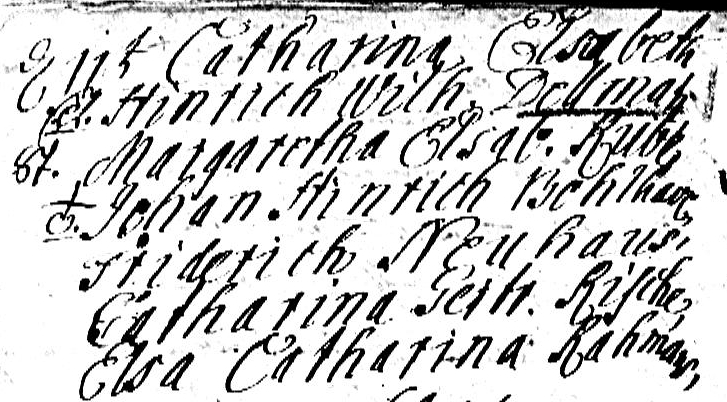 Catharina Elsabeth
Hinrich Wilh. Dellman
St. Margaretha Elsab.
Johan Hinrich
Friderich Neuhaus,
Catharina Gertr. Rische,
Elsa Catharina Rahman,